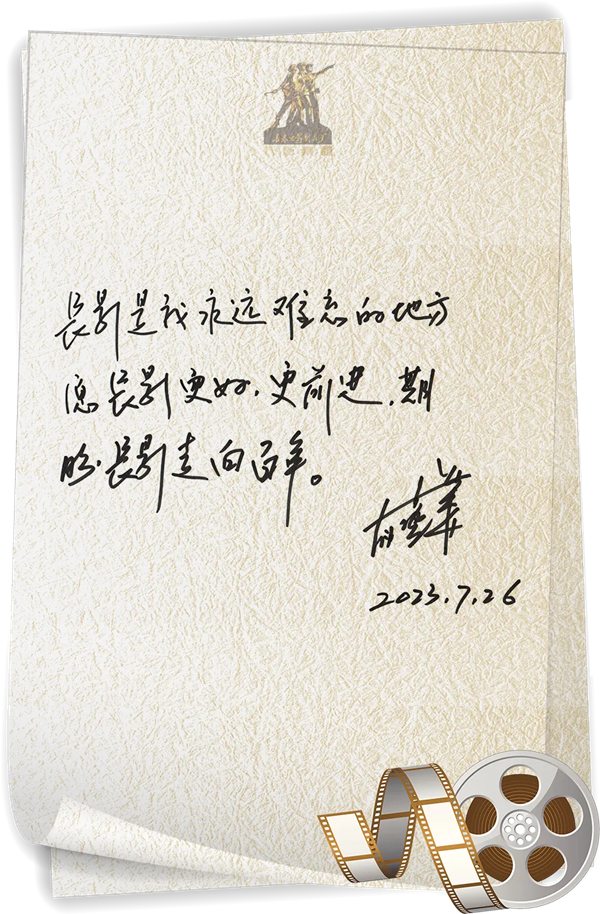 长春电影制片厂
长影是我永远难忘的地方
愿长影更好,更前进,期
盼长影走向百年。
2023.7.26